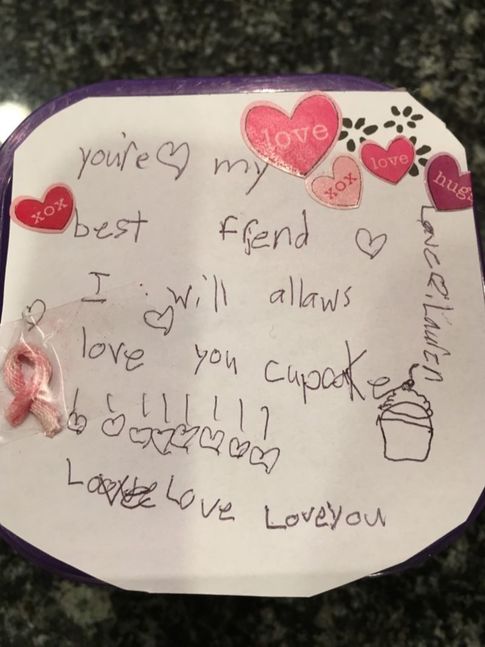 love
you're my
xox
love
hugs
xox
best ffiend
I will allaws
love you cupcake
Love Love Loveyou
Love Lauren